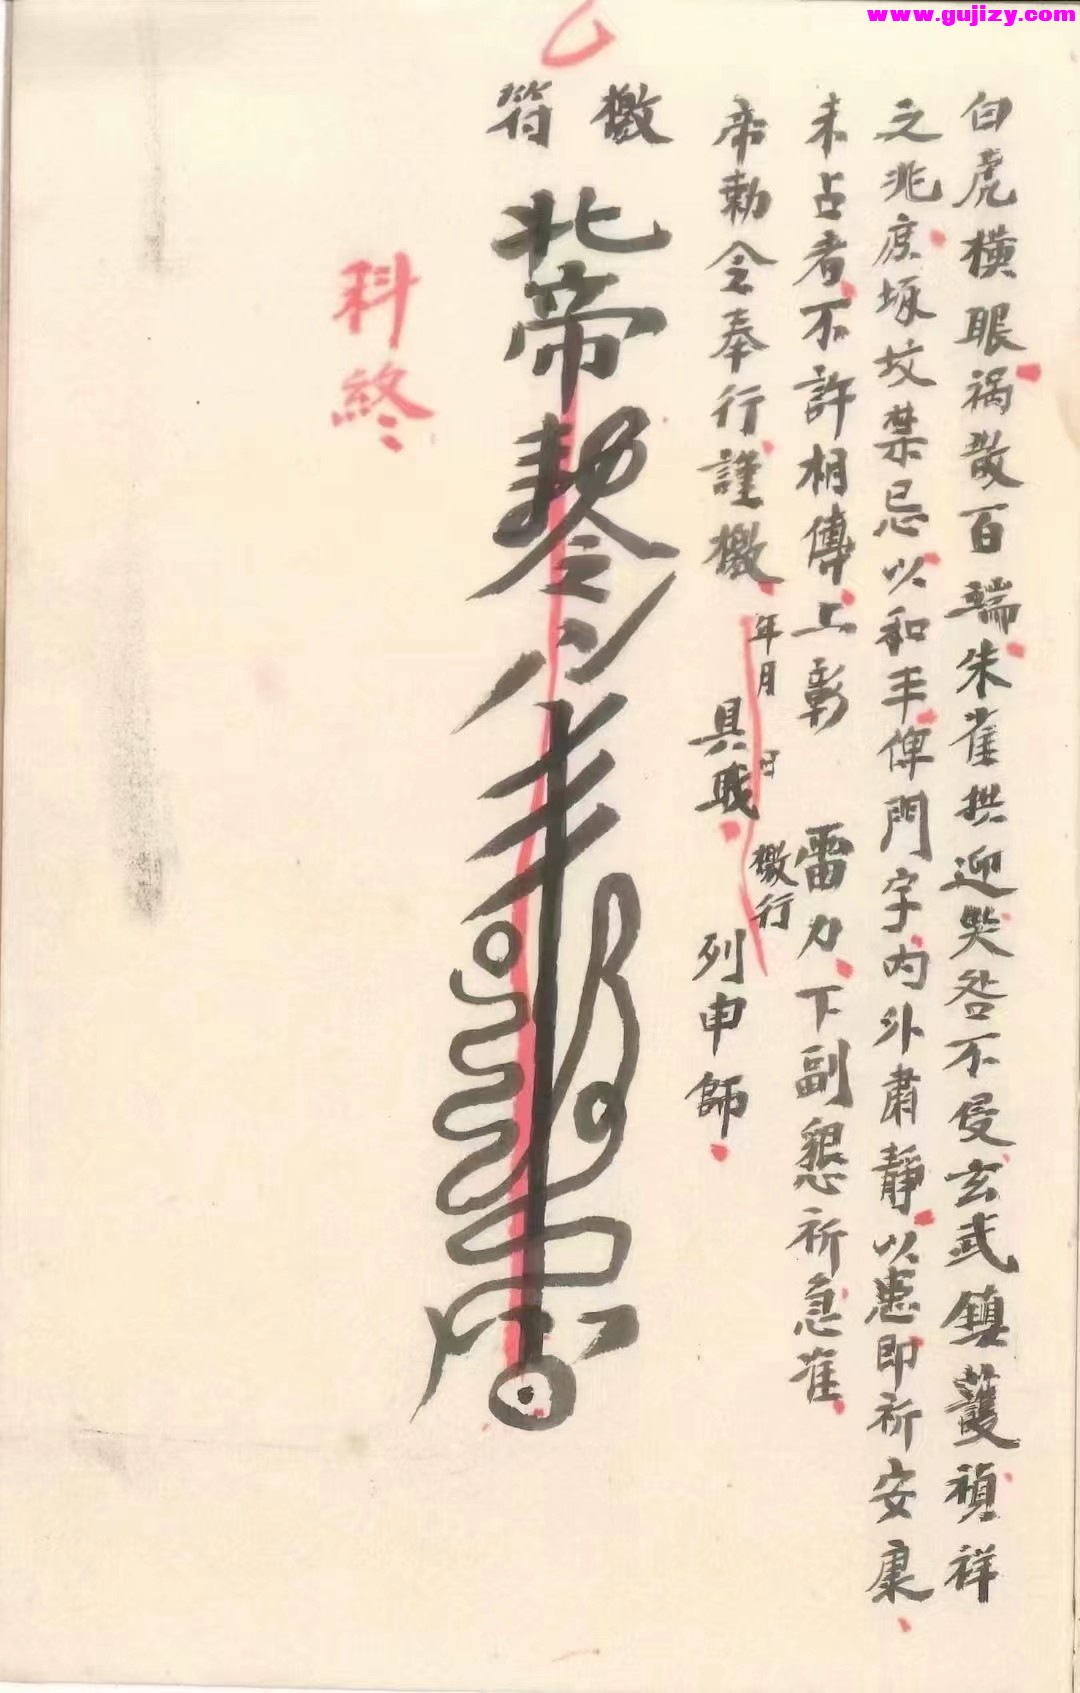 www.gujizy.com
白虎橫眼祸散百端朱雀拱迎哭咎不侵玄武鎮護禎祥
之兆庶塚坟禁忌以和平俾門字内外肅靜以患即祈安康
未占者不許相傳上彰 雷力下副懇祈急准
帝勅令奉行謹檄
年月 日 檄行
具職 列申師
檄
符
北帝勅令
科終